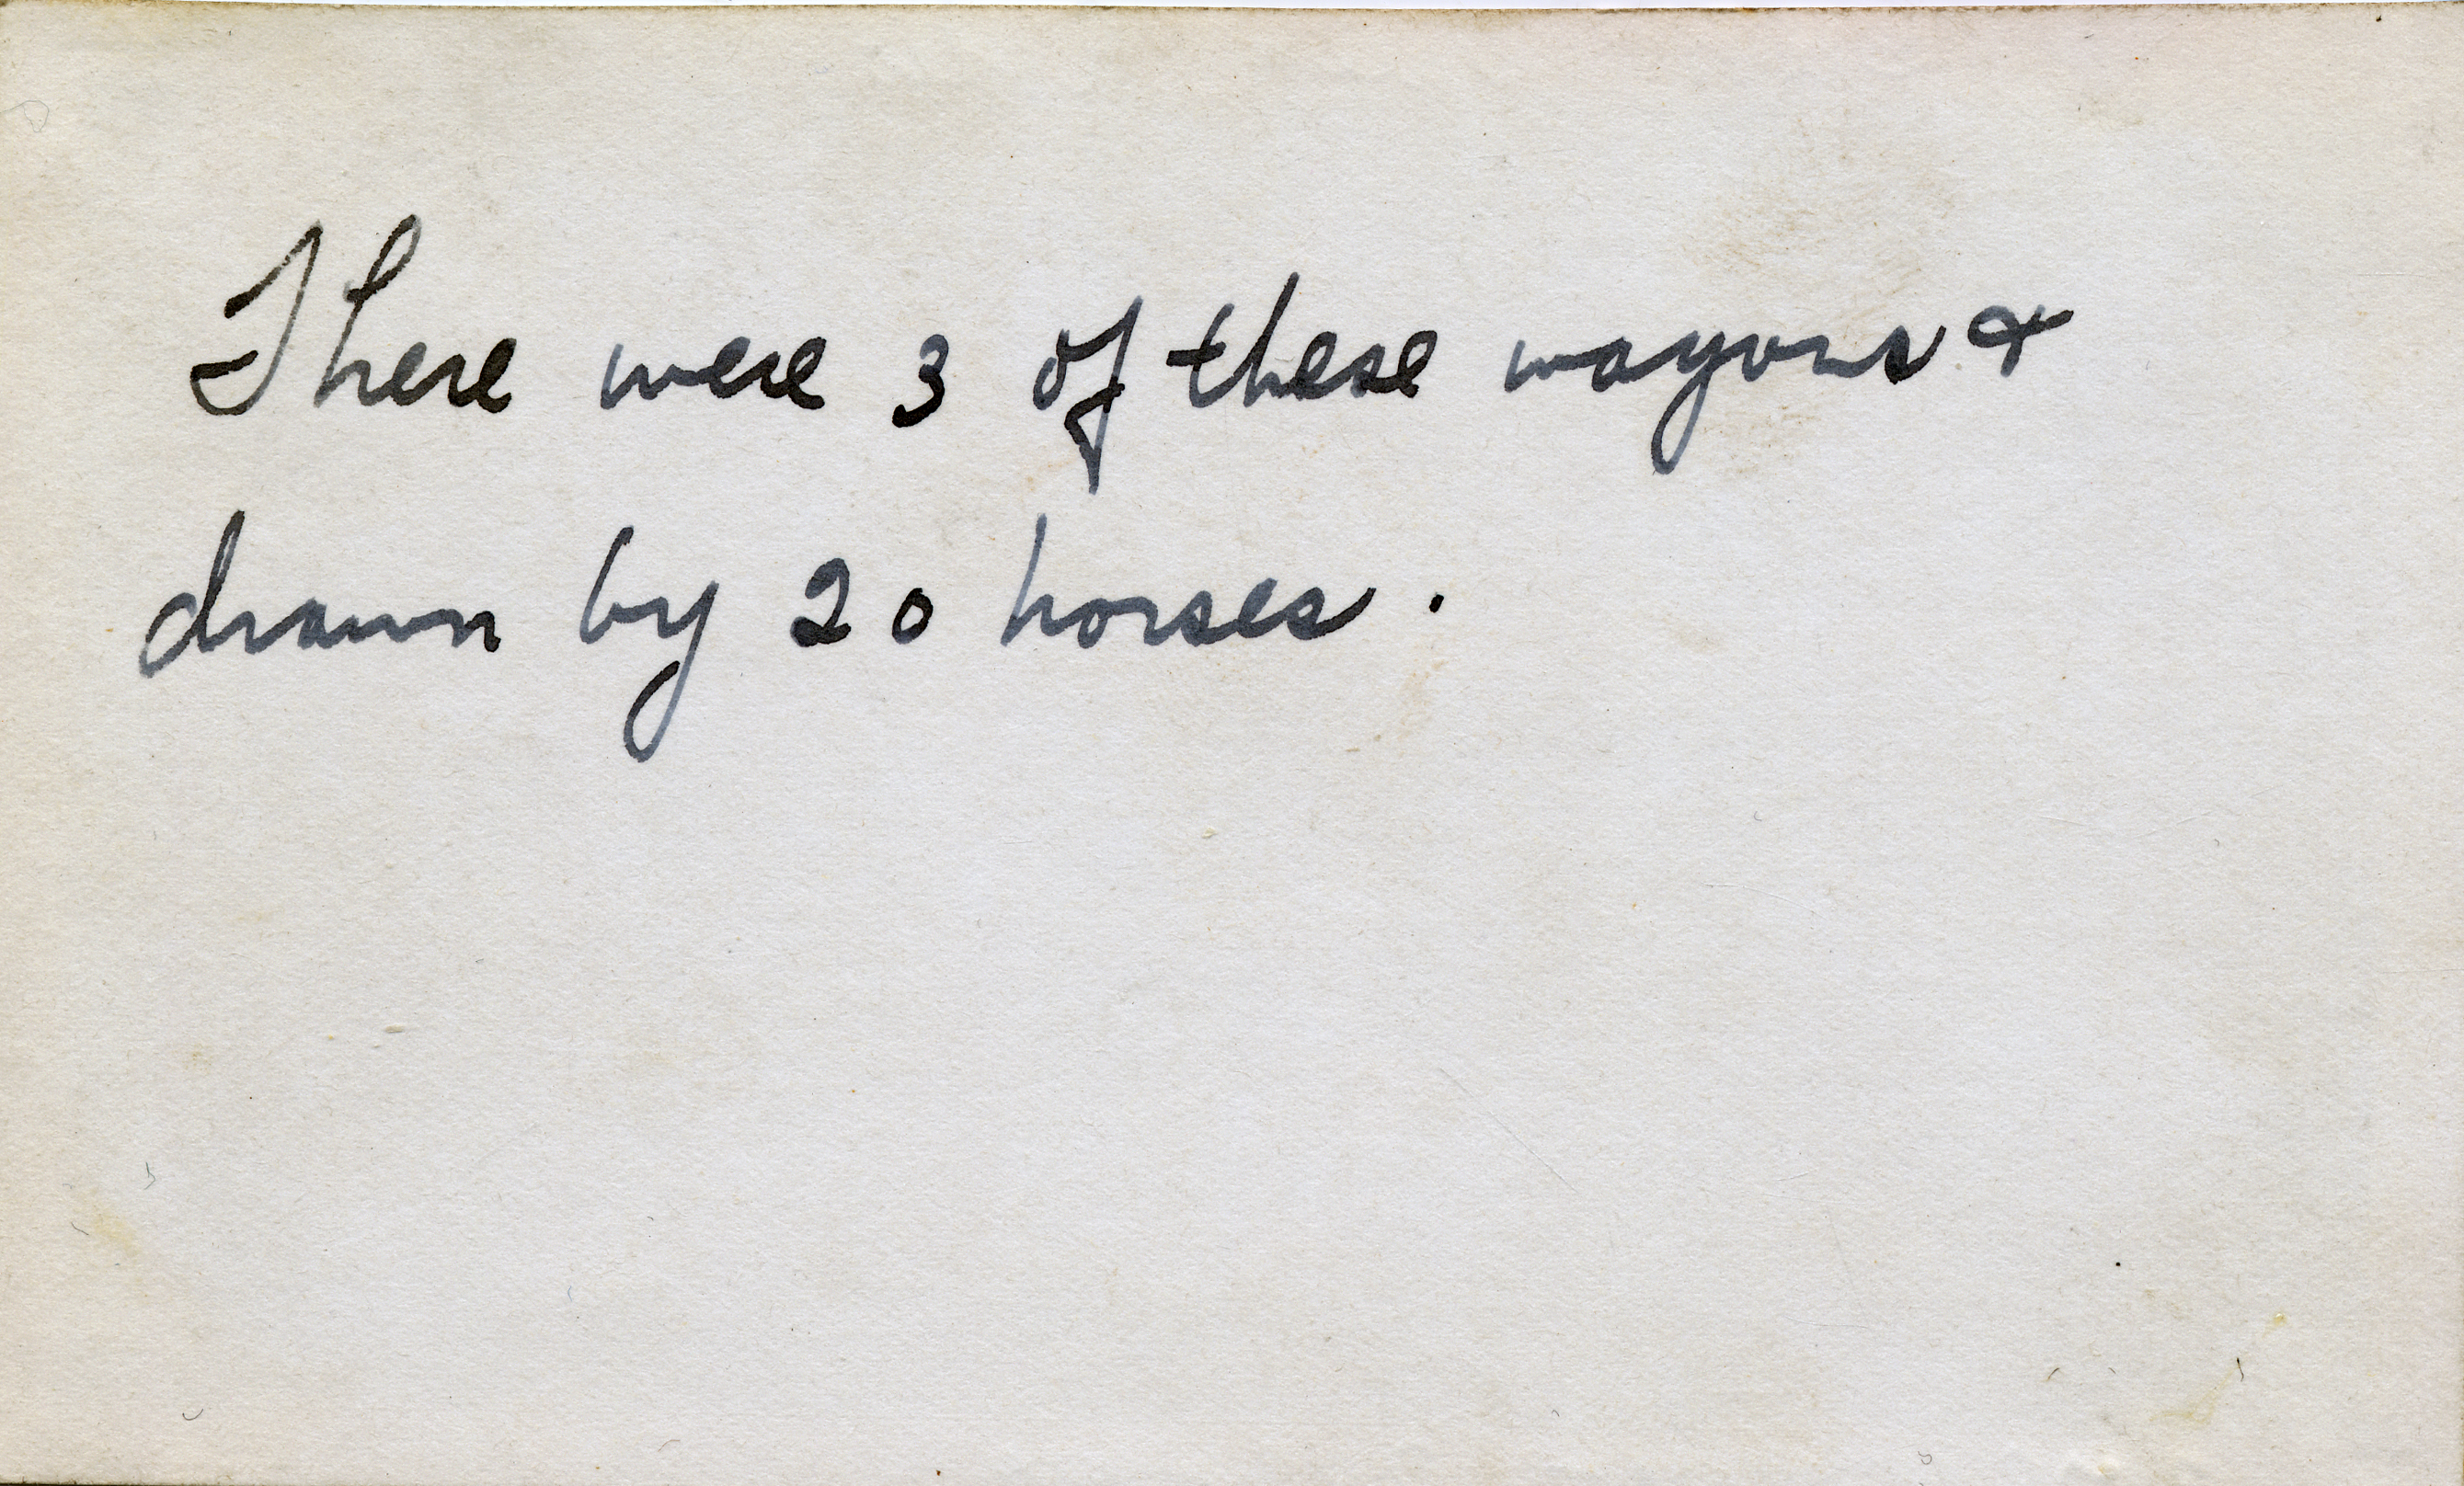 There were 3 of these wagons &
drawn by 20 horses.